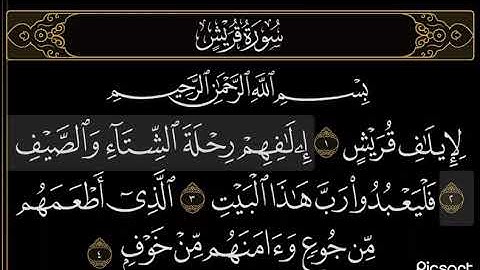 سُورَةُ قُرَيْشٍ
بِسْمِ اللَّهِ الرَّحْمَٰنِ الرَّحِيمِ
لِإِيلَٰفِ قُرَيْشٍ ١ إِۦلَٰفِهِمْ رِحْلَةَ ٱلشِّتَآءِ وَٱلصَّيْفِ
٢ فَلْيَعْبُدُوا۟ رَبَّ هَٰذَا ٱلْبَيْتِ ٣ ٱلَّذِىٓ أَطْعَمَهُم
مِّن جُوعٍ وَءَامَنَهُم مِّنْ خَوْفٍۭ ٤
Picsart